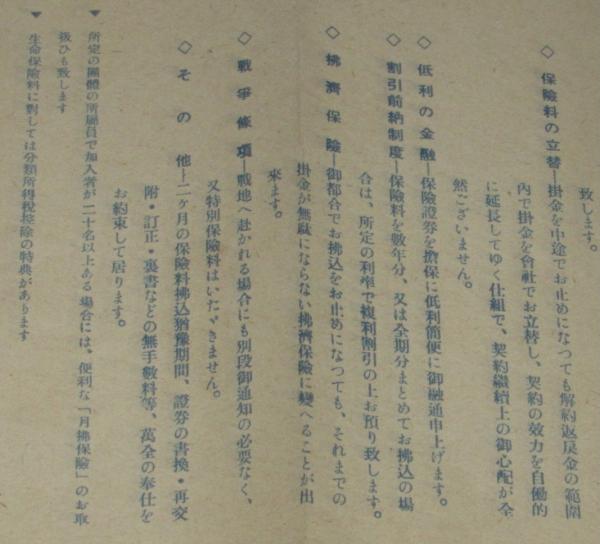 致します。
◇ 保險料の立替―掛金を中途でお止めになつても解約返戻金の範圍
内で掛金を會社でお立替し、契約の效力を自働的
に延長してゆく仕組で、契約繼續上の御心配が全
然ございません。
◇ 低利の金融―保險證券を擔保に低利簡便に御融通申上げます。
◇ 割引前納制度―保險料を數年分、又は全期分まとめてお拂込の場
合は、所定の利率で複利割引の上お預り致します。
◇ 拂濟保險―御都合でお拂込をお止めになつても、それまでの
掛金が無駄にならない拂濟保險に變へることが出
來ます。
◇ 戰爭條項―戰地へ赴かれる場合にも別段御通知の必要なく、
又特別保險料はいたゞきません。
◇ その他―二ヶ月の保險料拂込猶豫期間、證券の書換・再交
附・訂正・裏書などの無手數料等、萬全の奉仕を
お約束して居ります。
▼ 所定の團體の所屬員で加入者が二十名以上ある場合には、便利な「月拂保險」のお取
扱ひも致します
▼ 生命保險料に對しては分類所得稅控除の特典があります